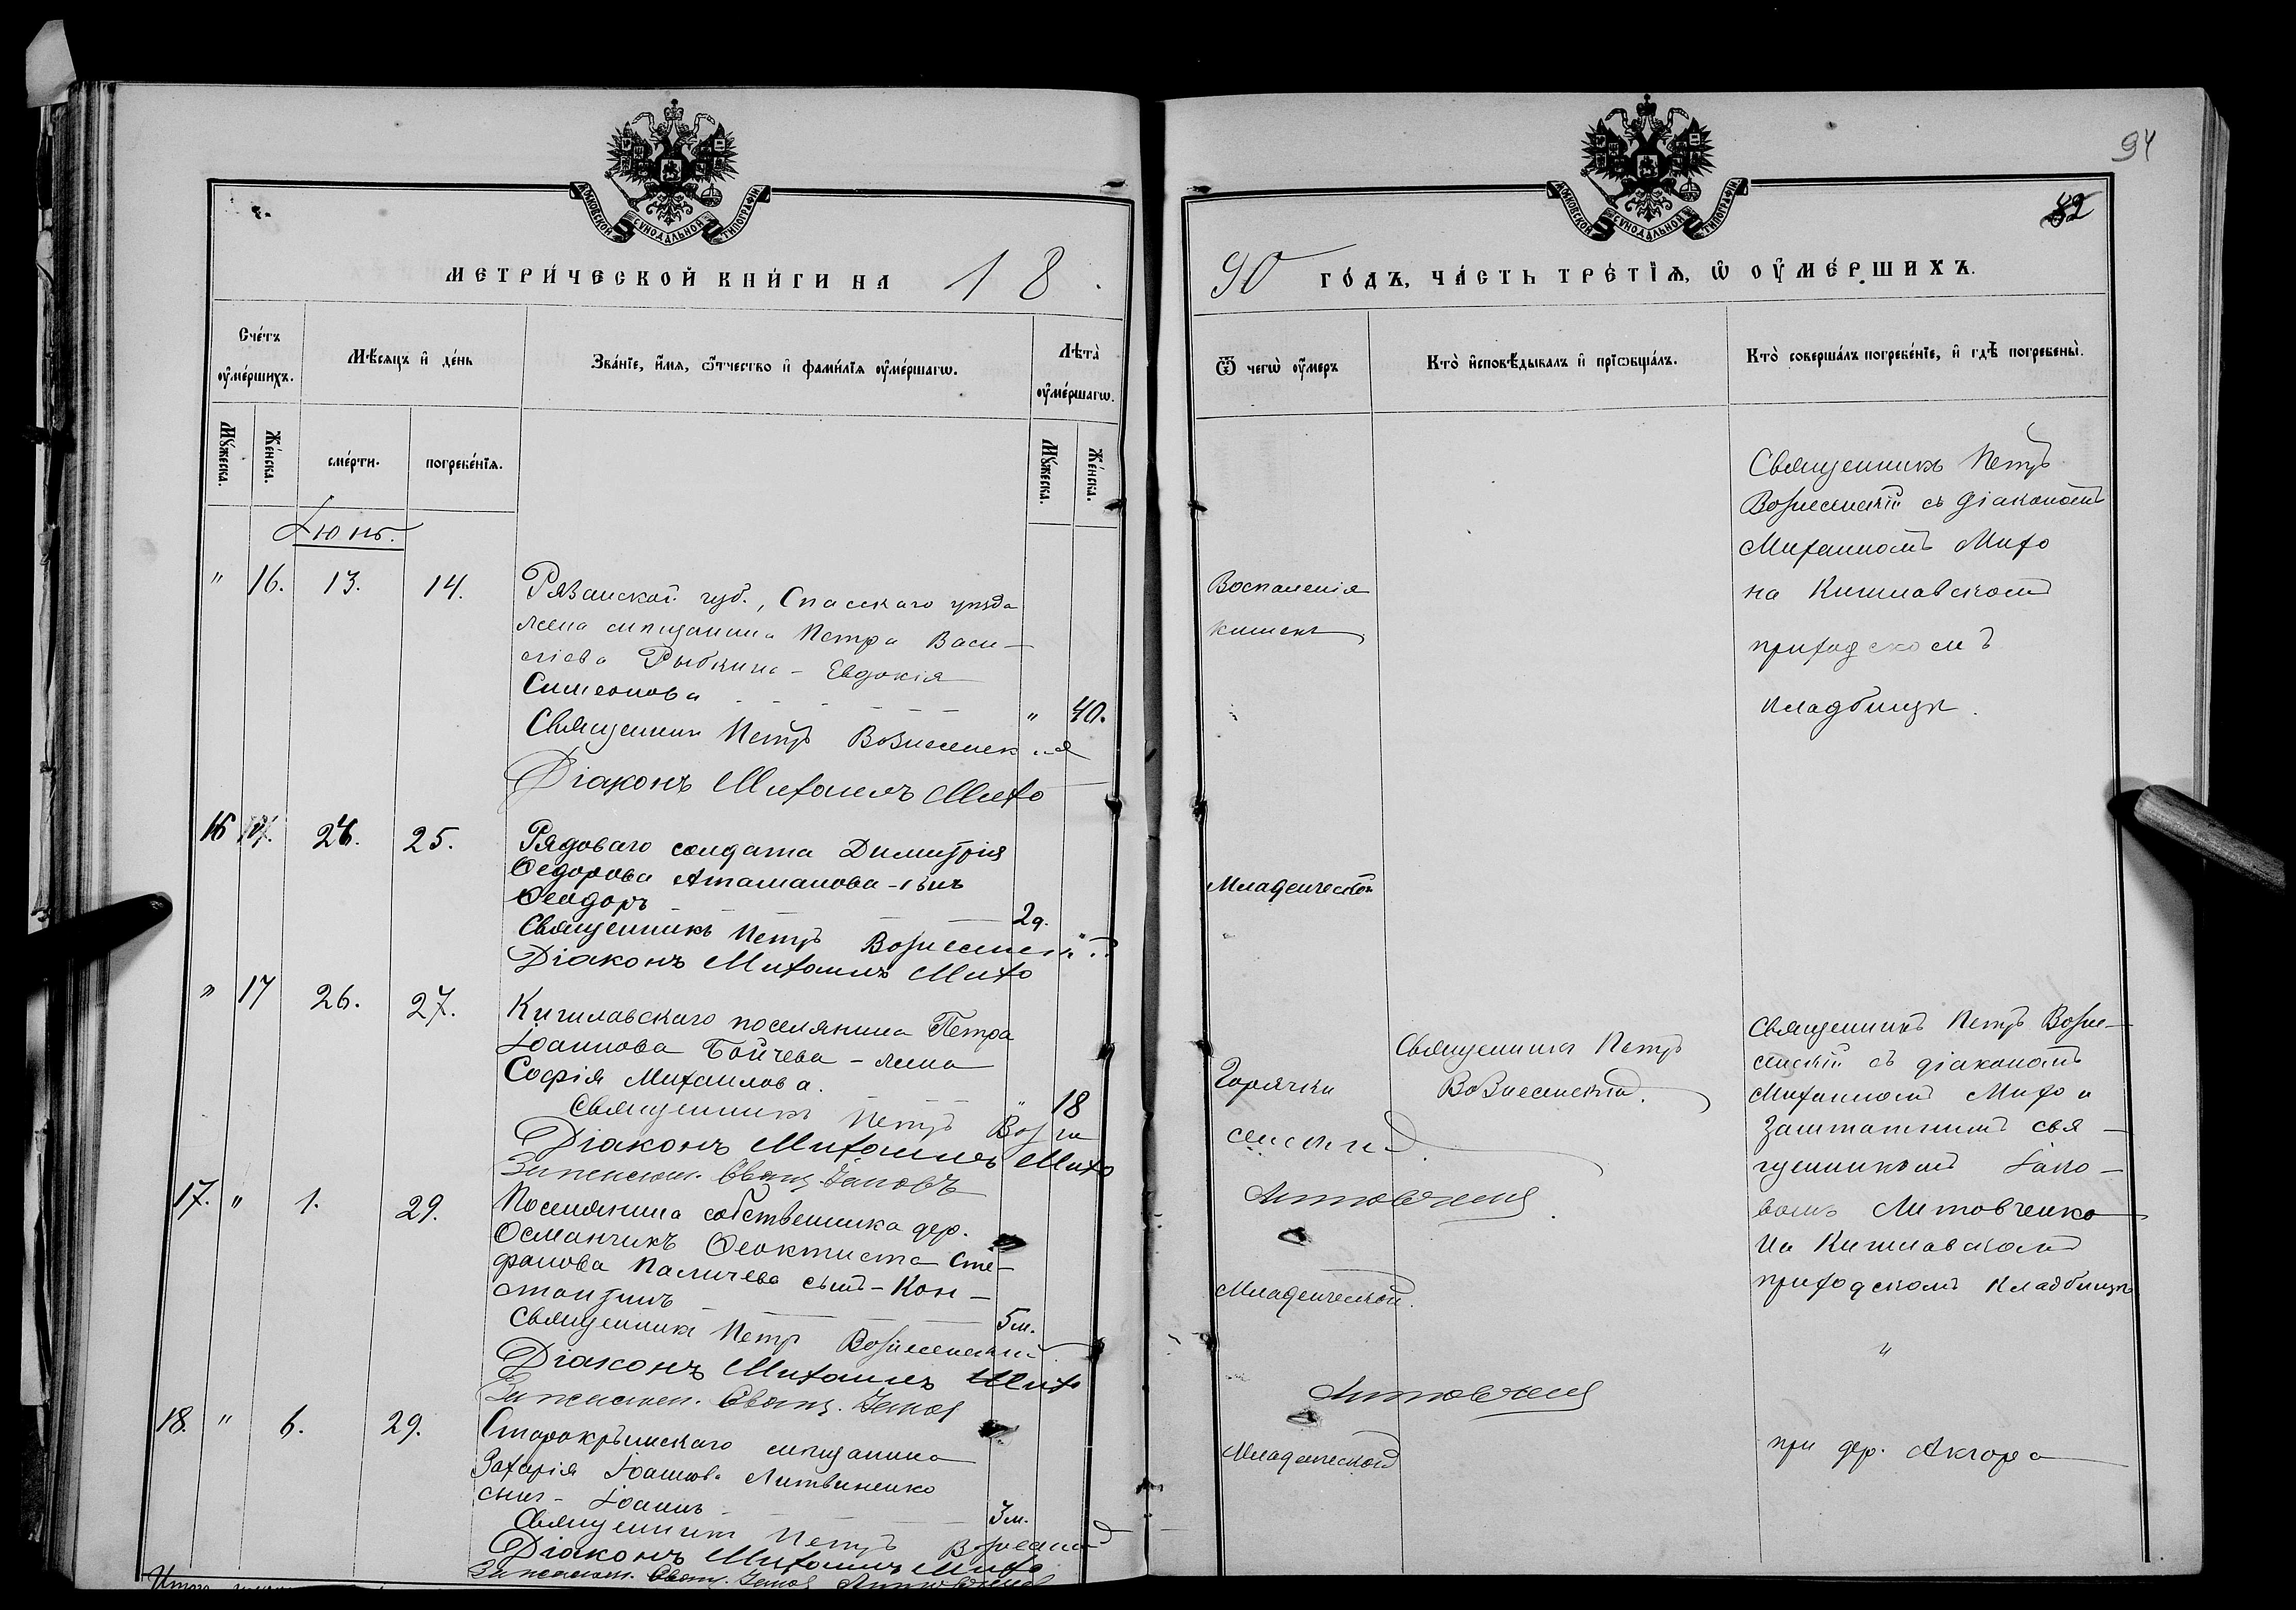 94
82
МОСКОВСКОЙ СѴНОДАЛЬНОЙ ТИПОГРАФІИ
МОСКОВСКОЙ СѴНОДАЛЬНОЙ ТИПОГРАФІИ
МЕТРИ́ЧЕСКОЙ КНИ́ГИ НА 18
90 ГО́ДЪ, ЧА́СТЬ ТРЕ́ТІѦ, Ѡ ОУ҆МЕ́РШИХЪ.
Сче́тъ оу҆ме́ршихъ.
Мѣ́сяцъ и҆ де́нь
Зва́нїе, и҆́мѧ, ѻ҆́тчество и҆ фами́лїѧ оу҆ме́ршагѡ.
Лѣта̀ оу҆ме́ршагѡ.
Ѿ чегѡ̀ оу҆́меръ
Кто̀ и҆сповѣ́дывалъ и҆ прїѡбща́лъ.
Кто̀ соверша́лъ погребе́нїе, и҆ гдѣ̀ погребены̀.
Мꙋ́жеска.
Же́нска.
сме́рти.
погребе́нїѧ.
Мꙋ́жеска.
Же́нска.
Іюнь.
" 16. 13. 14.
Рязанской губ., Спасскаго уѣзда
жена мѣщанина Петра Васи-
лiева Рыбкина - Евдокія
Симеонова " 40.
Священникъ Петръ Вознесенскій
Діаконъ Михаилъ Михо
Воспаленія
кишекъ
Священникъ Петръ
Вознесенскій съ діакономъ
Михаиломъ Михо
на Кишлавскомъ
приходскомъ
кладбищѣ.
16 24. 25.
Рядоваго солдата Димитрія
Ѳедорова Атаманова - сынъ
Ѳеодоръ 2 г.
Священникъ Петръ Вознесенскій
Діаконъ Михаилъ Михо
Младенческой
" 17 26. 27.
Кишлавскаго поселянина Петра
Іоаннова Бойчева - жена
Софія Михаилова. " 18
Священникъ Петръ Возне
сенскій.
Діаконъ Михаилъ Михо
Свящ. Іаковъ
Литовченко
Горячки
Священникъ Петръ
Вознесенскій.
Священникъ Петръ Возне-
сенскій съ діакономъ
Михаиломъ Михо и
заштатнымъ свя-
щенникомъ Іако-
вомъ Литовченко
На Кишлавскомъ
приходскомъ кладбищѣ
17. " 1. 29.
Поселянина собственника дер.
Османчикъ Ѳеоктиста Сте-
фанова Паличева сынъ - Кон-
стантинъ 5 м.
Священникъ Петръ Вознесенскій
Діаконъ Михаилъ Михо
Свящ. Іаковъ
Литовченко
Младенческой.
"
18. " 6. 29.
Старокрымскаго мѣщанина
Захарія Іоаннова Литвиненко
сынъ - Іоаннъ 3 м.
Священникъ Петръ Вознесенскій
Діаконъ Михаилъ Михо
Свящ. Іаковъ Литовченко
Младенческой
при дер. Акчора
Итого